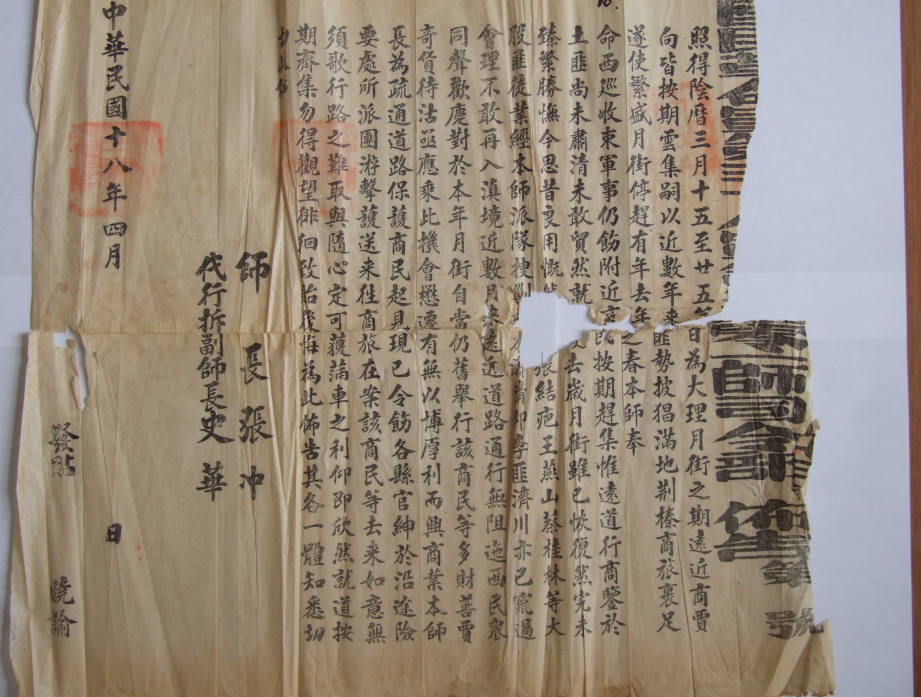 師司令部佈告
號
照得陰曆三月十五至廿五日為大理月街之期遠近商賈
向皆按期雲集嗣以近數年來匪勢披猖滿地荆榛商旅裹足
遂使繁盛月街停趕有年去年之春本師奉
命西巡收束軍事仍飭附近民按期趕集惟遠道行商鑒於
土匪尚未肅清未敢貿然就去歲月街雖已恢復然究未
臻繁勝憮今思昔良用慨張結疤王燕山蔡桂林等大
股匪徒業經本師派隊搜剿肅清即李匪濟川亦已竄過
會理不敢再入滇境近數月來遠近道路通行無阻迤西民衆
同聲歡慶對於本年月街自當仍舊舉行該商民等多財善賈
奇貨待沽亟應乘此機會懋遷有無以博厚利而興商業本師
長為疏通道路保護商民起見現已令飭各縣官紳於沿途險
要處所派團游擊護送來往商旅在案該商民等去來如意無
須歌行路之難取與隨心定可獲滿車之利仰即欣然就道按
期齊集勿得觀望徘徊致貽後悔為此佈告其各一體知悉切
切此佈
師長張冲
代行拆副師長史華
中華民國十八年四月 日
發貼 曉諭